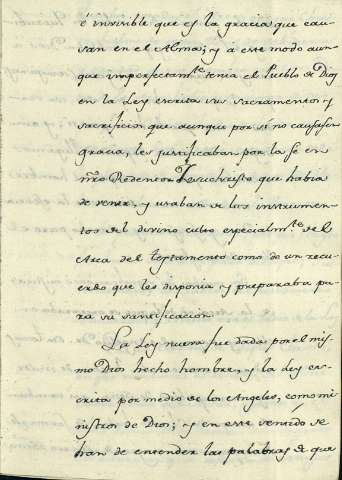 é invisible que es la gracia que cau-
san en el Alma; y á este modo aun-
que imperfectam.te tenia el Pueblo de Dios
en la Ley escrita sus sacramentos y
sacrificios que aunque por sí no causasen
gracia, les justificaban por la fé en
ntro Redentor Jesuchristo que habia
de venir, y usaban de los instrumen-
tos del divino culto especialm.te de el
Arca del testamento como de un recu-
erdo que les disponia y preparaba pa-
ra su santificacion
La Ley nueva fue dada por el mis-
mo Dios hecho hombre, y la Ley es-
crita por medio de los Angeles, como mi-
nistros de Dios; y en este sentido se
han de entender las palabras de que